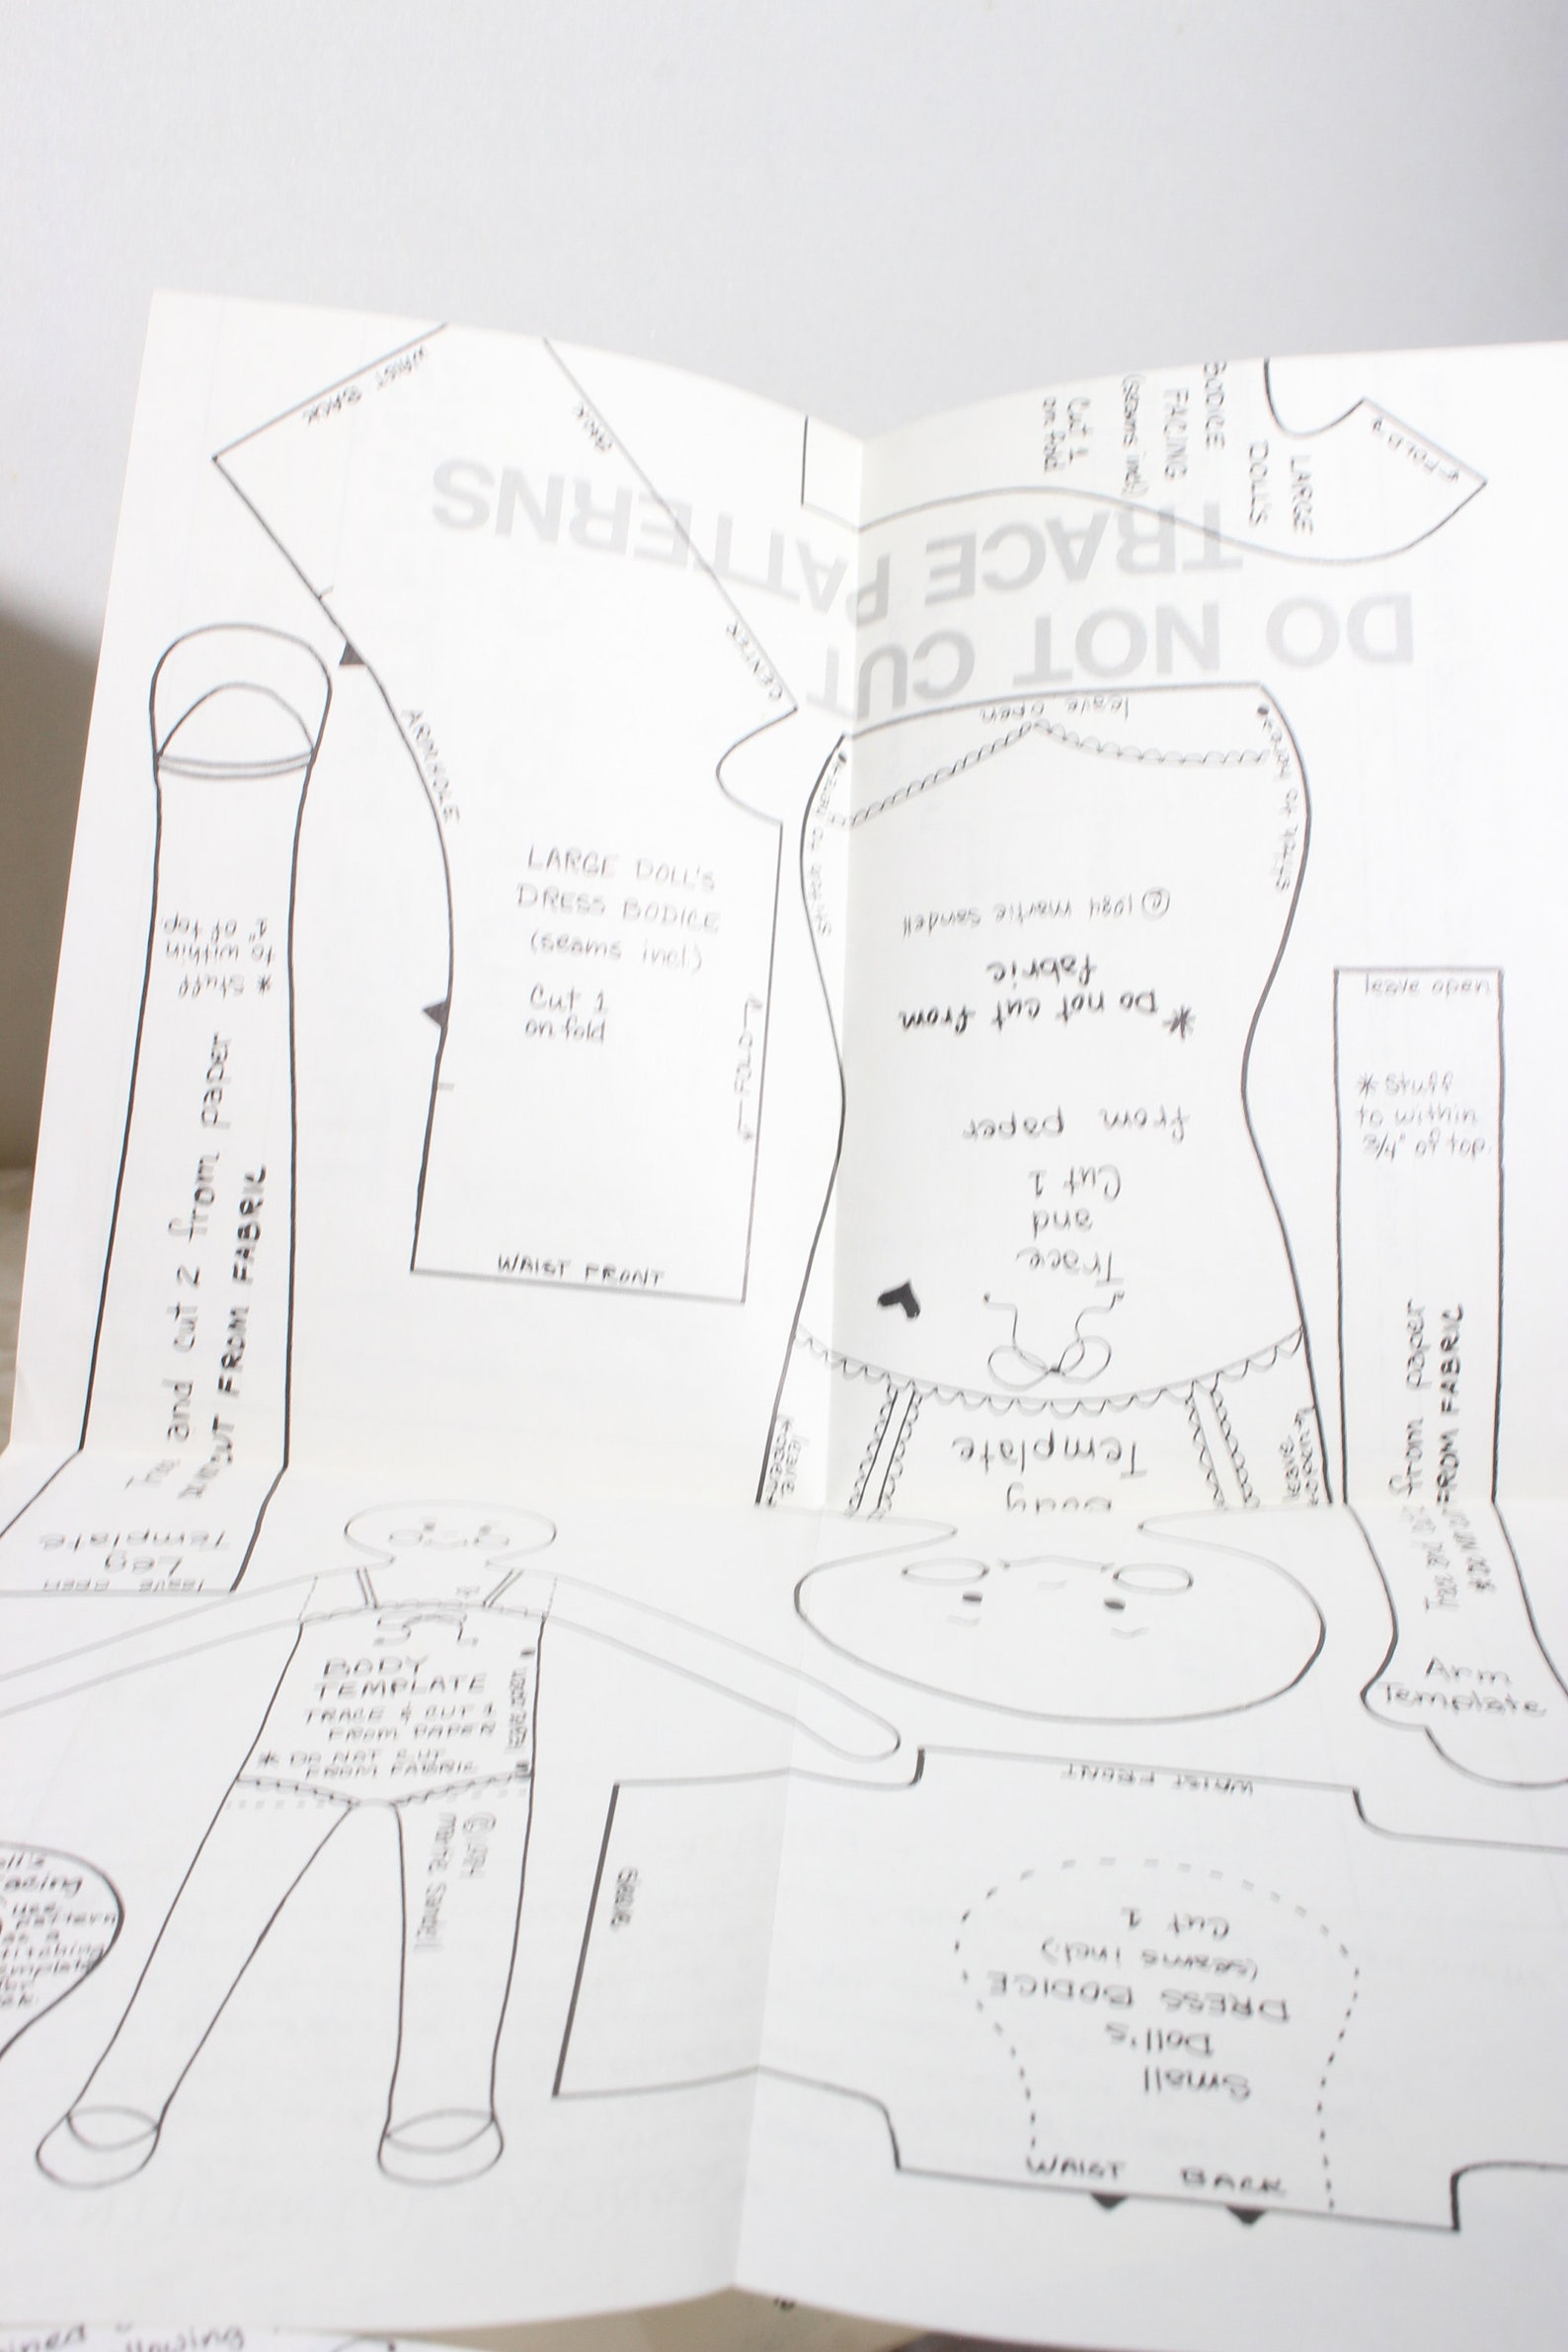 WAIST BACK
BACK
CENTER
ARMHOLE
LARGE DOLL'S
DRESS BODICE
(seams incl.)
Cut 1
on fold
FOLD
WAIST FRONT
LARGE
DOLL'S
BODICE
FACING
(seams incl.)
Cut 1
on fold
FOLD
DO NOT CUT
TRACE PATTERNS
Leg
Template
leave open
and cut 2 from paper
CUT FROM FABRIC
* Stuff
to within
1" of top
Template
Trace
and
Cut 1
from paper
*Do not cut from
fabric
© 1984 martie sandell
leave open
leave
leave
leave open
* Stuff
to within
3/4" of top.
from paper
FROM FABRIC
Arm
Template
BODY
TEMPLATE
TRACE & CUT 1
FROM PAPER
* DO NOT CUT
FROM FABRIC
leave open
© 1984
martie sandell
Small
Doll's
DRESS BODICE
(seams incl.)
Cut 1
WAIST FRONT
WAIST BACK
Sleeve
acing
use
pattern
as a